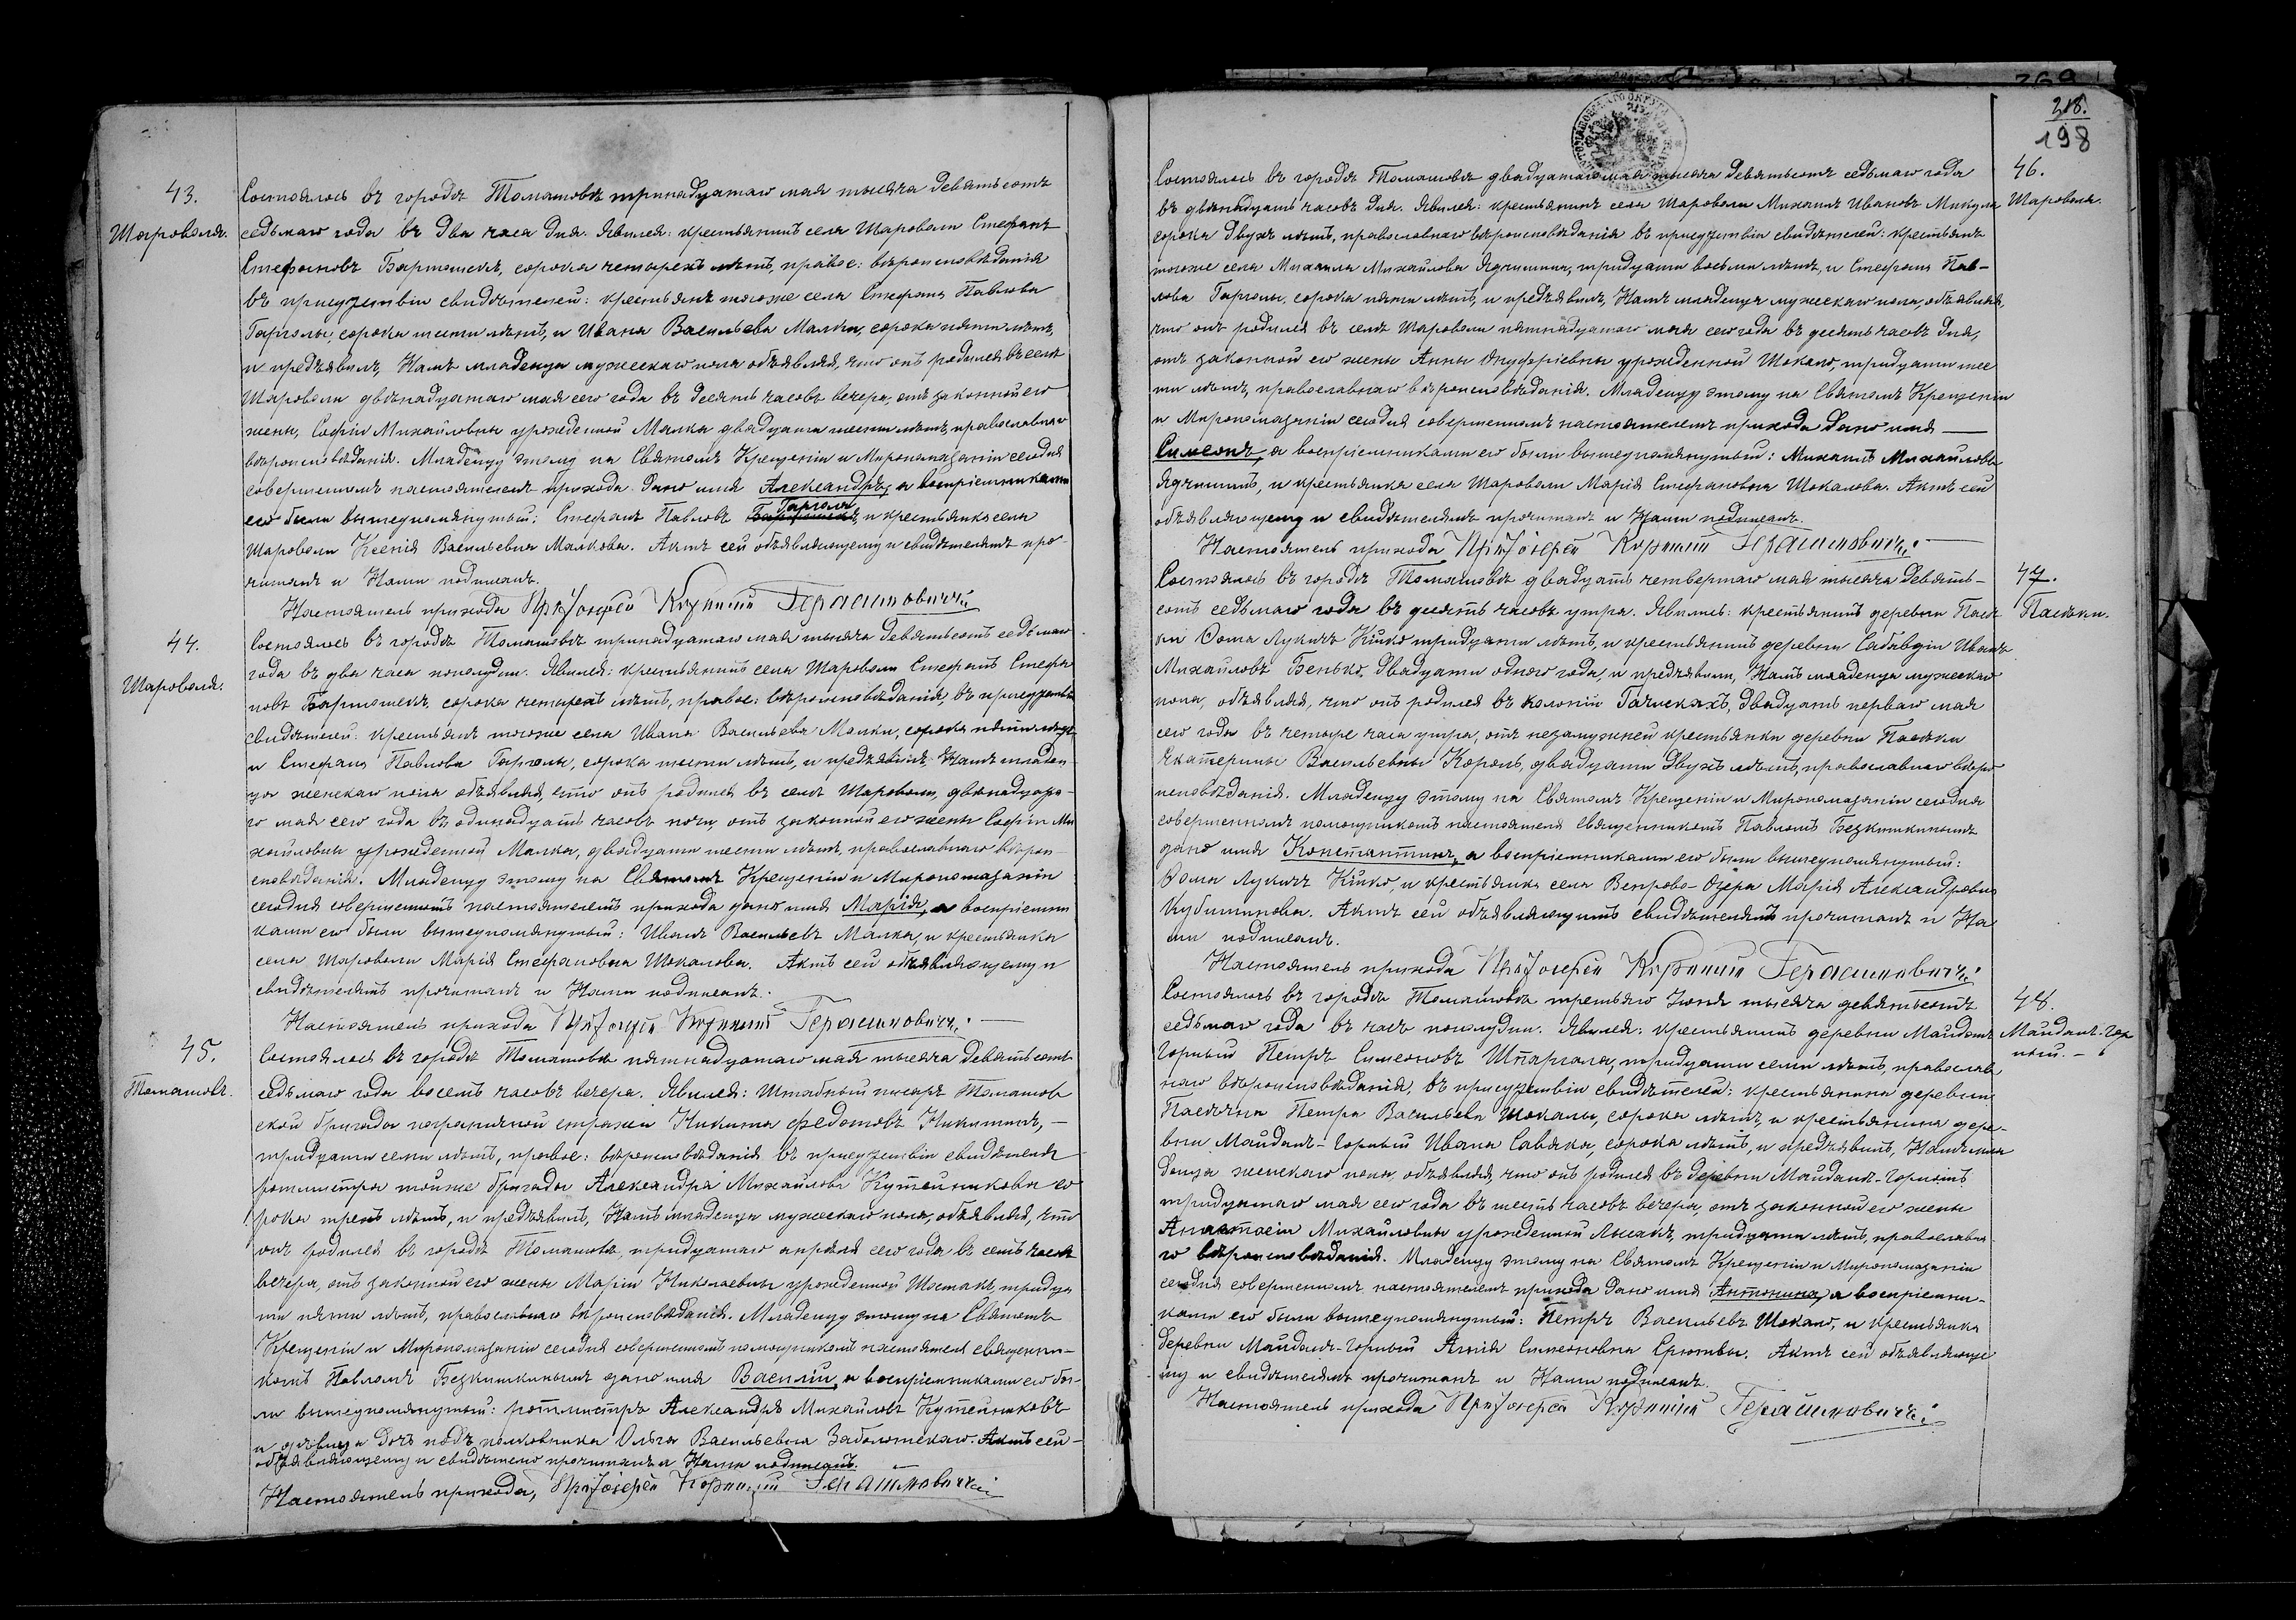 43.
Шароволя.
Состоялось въ городѣ Томашовѣ тринадцатаго мая тысяча девятьсотъ
седьмаго года въ два часа дня. Явился: крестьянинъ села Шароволи Стефанъ
Стефановъ Бартошекъ, сорока четырехъ лѣтъ, правос: вѣроисповѣданія
въ присутствіи свидѣтелей: крестьянъ тогоже села Стефана Павлова
Гарголы, сорока шести лѣтъ, и Ивана Васильева Малки, сорока пяти лѣтъ,
и предъявилъ Намъ младенца мужескаго пола объявляя, что онъ родился въ селѣ
Шароволи двѣнадцатаго мая сего года въ десять часовъ вечера, отъ законной его
жены, Софіи Михайловны урожденной Малка двадцати шести лѣтъ, православнаго
вѣроисповѣданія. Младенцу этому на Святомъ Крещеніи и Миропомазаніи сегодня
совершенномъ настоятелемъ прихода дано имя Александръ, а воспріемниками
Гаргола
его были вышеупомянутый: Стефанъ Павловъ и крестьянка села
Шароволи Ксенія Васильевна Малкова. Актъ сей объявляющему и свидѣтелямъ про-
читанъ и Нами подписанъ.
Настоятель прихода Протоіерей Корнилій Герасимовичъ
44.
Шароволя.
Состоялось въ городѣ Томашовѣ тринадцатаго мая тысяча девятьсотъ седьмаго
года въ два часа пополудни. Явился: крестьянинъ села Шароволи Стефанъ Стефа
новъ Бартошекъ, сорока четырехъ лѣтъ, правос: вѣроисповѣданія, въ присутствіи
свидѣтелей: крестьянъ тогоже села Ивана Васильева Малки, сорока пяти лѣтъ,
и Стефана Павлова Гарголы, сорока шести лѣтъ, и предъявилъ Намъ младен-
ца женскаго пола объявляя, что онъ родился въ селѣ Шароволи, двѣнадцата-
го мая сего года въ одинадцать часовъ ночи, отъ законной его жены Софіи Ми
хайловны урожденной Малка, двадцати шести лѣтъ, православнаго вѣрои-
сповѣданія. Младенцу этому на Святомъ Крещеніи и Миропомазаніи
сегодня совершенномъ настоятелемъ прихода дано имя Марія, а воспріемни
ками его были вышеупомянутый: Иванъ Васильевъ Малка, и крестьянка
села Шароволи Марія Стефановна Шокалова. Актъ сей объявляющему и
свидѣтелямъ прочитанъ и Нами подписанъ.
Настоятель прихода Протоіерей Корнилій Герасимовичъ
45.
Томашовъ.
Состоялось въ городѣ Томашовѣ пятнадцатаго мая тысяча девятьсотъ
седьмаго года восемь часовъ вечера. Явился: Штабный писарь Томашов
ской бригады пограничной стражи Никита Федотовъ Никитинъ, —
тридцати семи лѣтъ, правос: вѣроисповѣданія въ присутствіи свидѣтеля
ротмистра тойже бригады Александра Михайлова Кутейникова со
рока трехъ лѣтъ, и предъявилъ, Намъ младенца мужескаго пола, объявляя, что
онъ родился въ городѣ Томашовѣ, тридцатаго апрѣля сего года въ семь часовъ
вечера, отъ законной его жены Маріи Николаевны урожденной Шостакъ, тридца
ти пяти лѣтъ, православнаго вѣроисповѣданія. Младенцу этому на Святомъ
Крещеніи и Миропомазаніи сегодня совершенномъ помощникомъ настоятеля священни-
комъ Павломъ Безкишкинымъ дано имя Василій, а воспріемниками его бы-
ли вышеупомянутый: ротмистръ Александръ Михайловъ Кутейниковъ
и дѣвица дочь подъ полковника Ольга Васильевна Заболотскаго. Актъ сей
объявляющему и свидѣтелю прочитанъ и Нами подписанъ.
Настоятель прихода, Протоіерей Корнилій Герасимовичъ
218.
198
46.
Шароволя.
Состоялось въ городѣ Томашовѣ двадцатаго мая тысяча девятьсотъ седьмаго года
въ двѣнадцать часовъ дня. Явился: крестьянинъ села Шароволи Михаилъ Ивановъ Микула
сорока двухъ лѣтъ, православнаго вѣроисповѣданія въ присутствіи свидѣтелей: крестьянъ
тогоже села Михаила Михайлова Ядчишина, тридцати восьми лѣтъ, и Стефана Пав-
лова Гарголы, сорока пяти лѣтъ, и предъявилъ, Намъ младенца мужескаго пола, объявляя,
что онъ родился въ селѣ Шароволи пятнадцатаго мая сего года въ десять часовъ дня,
отъ законной его жены Анны Онуфріевны урожденной Шокало, тридцати шес
ти лѣтъ, православнаго вѣроисповѣданія. Младенцу этому на Святомъ Крещеніи
и Миропомазаніи сегодня совершенномъ настоятелемъ прихода дано имя —
Симеонъ, а воспріемниками его были вышеупомянутый: Михаилъ Михайловъ
Ядчишинъ, и крестьянка села Шароволи Марія Стефановна Шокалова. Актъ сей
объявляющему и свидѣтелямъ прочитанъ и Нами подписанъ.
Настоятель прихода Протоіерей Корнилій Герасимовичъ
47.
Пасѣки.
Состоялось въ городѣ Томашовѣ двадцать четвертаго мая тысяча девять-
сотъ седьмаго года въ десять часовъ утра. Явились: крестьянинъ деревни Пасѣ
ки Ѳома Лукичъ Кицко тридцати лѣтъ, и крестьянинъ деревни Сабавдіи Иванъ
Михайловъ Бенько, двадцати одного года, и предъявили, Намъ младенца мужескаго
пола, объявляя, что онъ родился въ колоніи Гачискахъ, двадцать перваго мая
сего года въ четыре часа утра, отъ незамужней крестьянки деревни Пасѣки
Екатерины Васильевны Король, двадцати двухъ лѣтъ, православнаго вѣро
исповѣданія. Младенцу этому на Святомъ Крещеніи и Миропомазаніи сегодня
совершенномъ помощникомъ настоятеля священникомъ Павломъ Безкишкинымъ
дано имя Константинъ, а воспріемниками его были вышеупомянутый:
Ѳома Лукичъ Кицко, и крестьянка села Вепрово-Озера Марія Александровна
Актъ сей объявляющимъ свидѣтелямъ прочитанъ и На
ми подписанъ.
Настоятель прихода Протоіерей Корнилій Герасимовичъ
48.
Майданъ-Гор
ный. —
Состоялось въ городѣ Томашовѣ третьяго Іюня тысяча девятьсотъ
седьмаго года въ часъ пополудни. Явился: крестьянинъ деревни Майданъ
Горный Петръ Симеоновъ Шпаргала, тридцати семи лѣтъ, православ
наго вѣроисповѣданія, въ присутствіи свидѣтелей: крестьянина деревни
Пасѣчна Петра Васильева Шокалы, сорока лѣтъ, и крестьянина дере-
вни Майданъ-Горный Ивана Савяка, сорока лѣтъ, и предъявилъ, Намъ мла
денца женскаго пола, объявляя, что онъ родился въ деревни Майданъ-Горномъ
тридцатаго мая сего года въ шесть часовъ вечера, отъ законной его жены
Анастасіи Михайловны урожденной Лысакъ, тридцати лѣтъ, православна
го вѣроисповѣданія. Младенцу этому на Святомъ Крещеніи и Миропомазаніи
сегодня совершенномъ настоятелемъ прихода дано имя Антонина, а воспріемни-
ками его были вышеупомянутый: Петръ Васильевъ Шокало, и крестьянка
деревни Майданъ-Горный Анна Симеоновна Актъ сей объявляюще
му и свидѣтелямъ прочитанъ и Нами подписанъ.
Настоятель прихода Протоіерей Корнилій Герасимовичъ